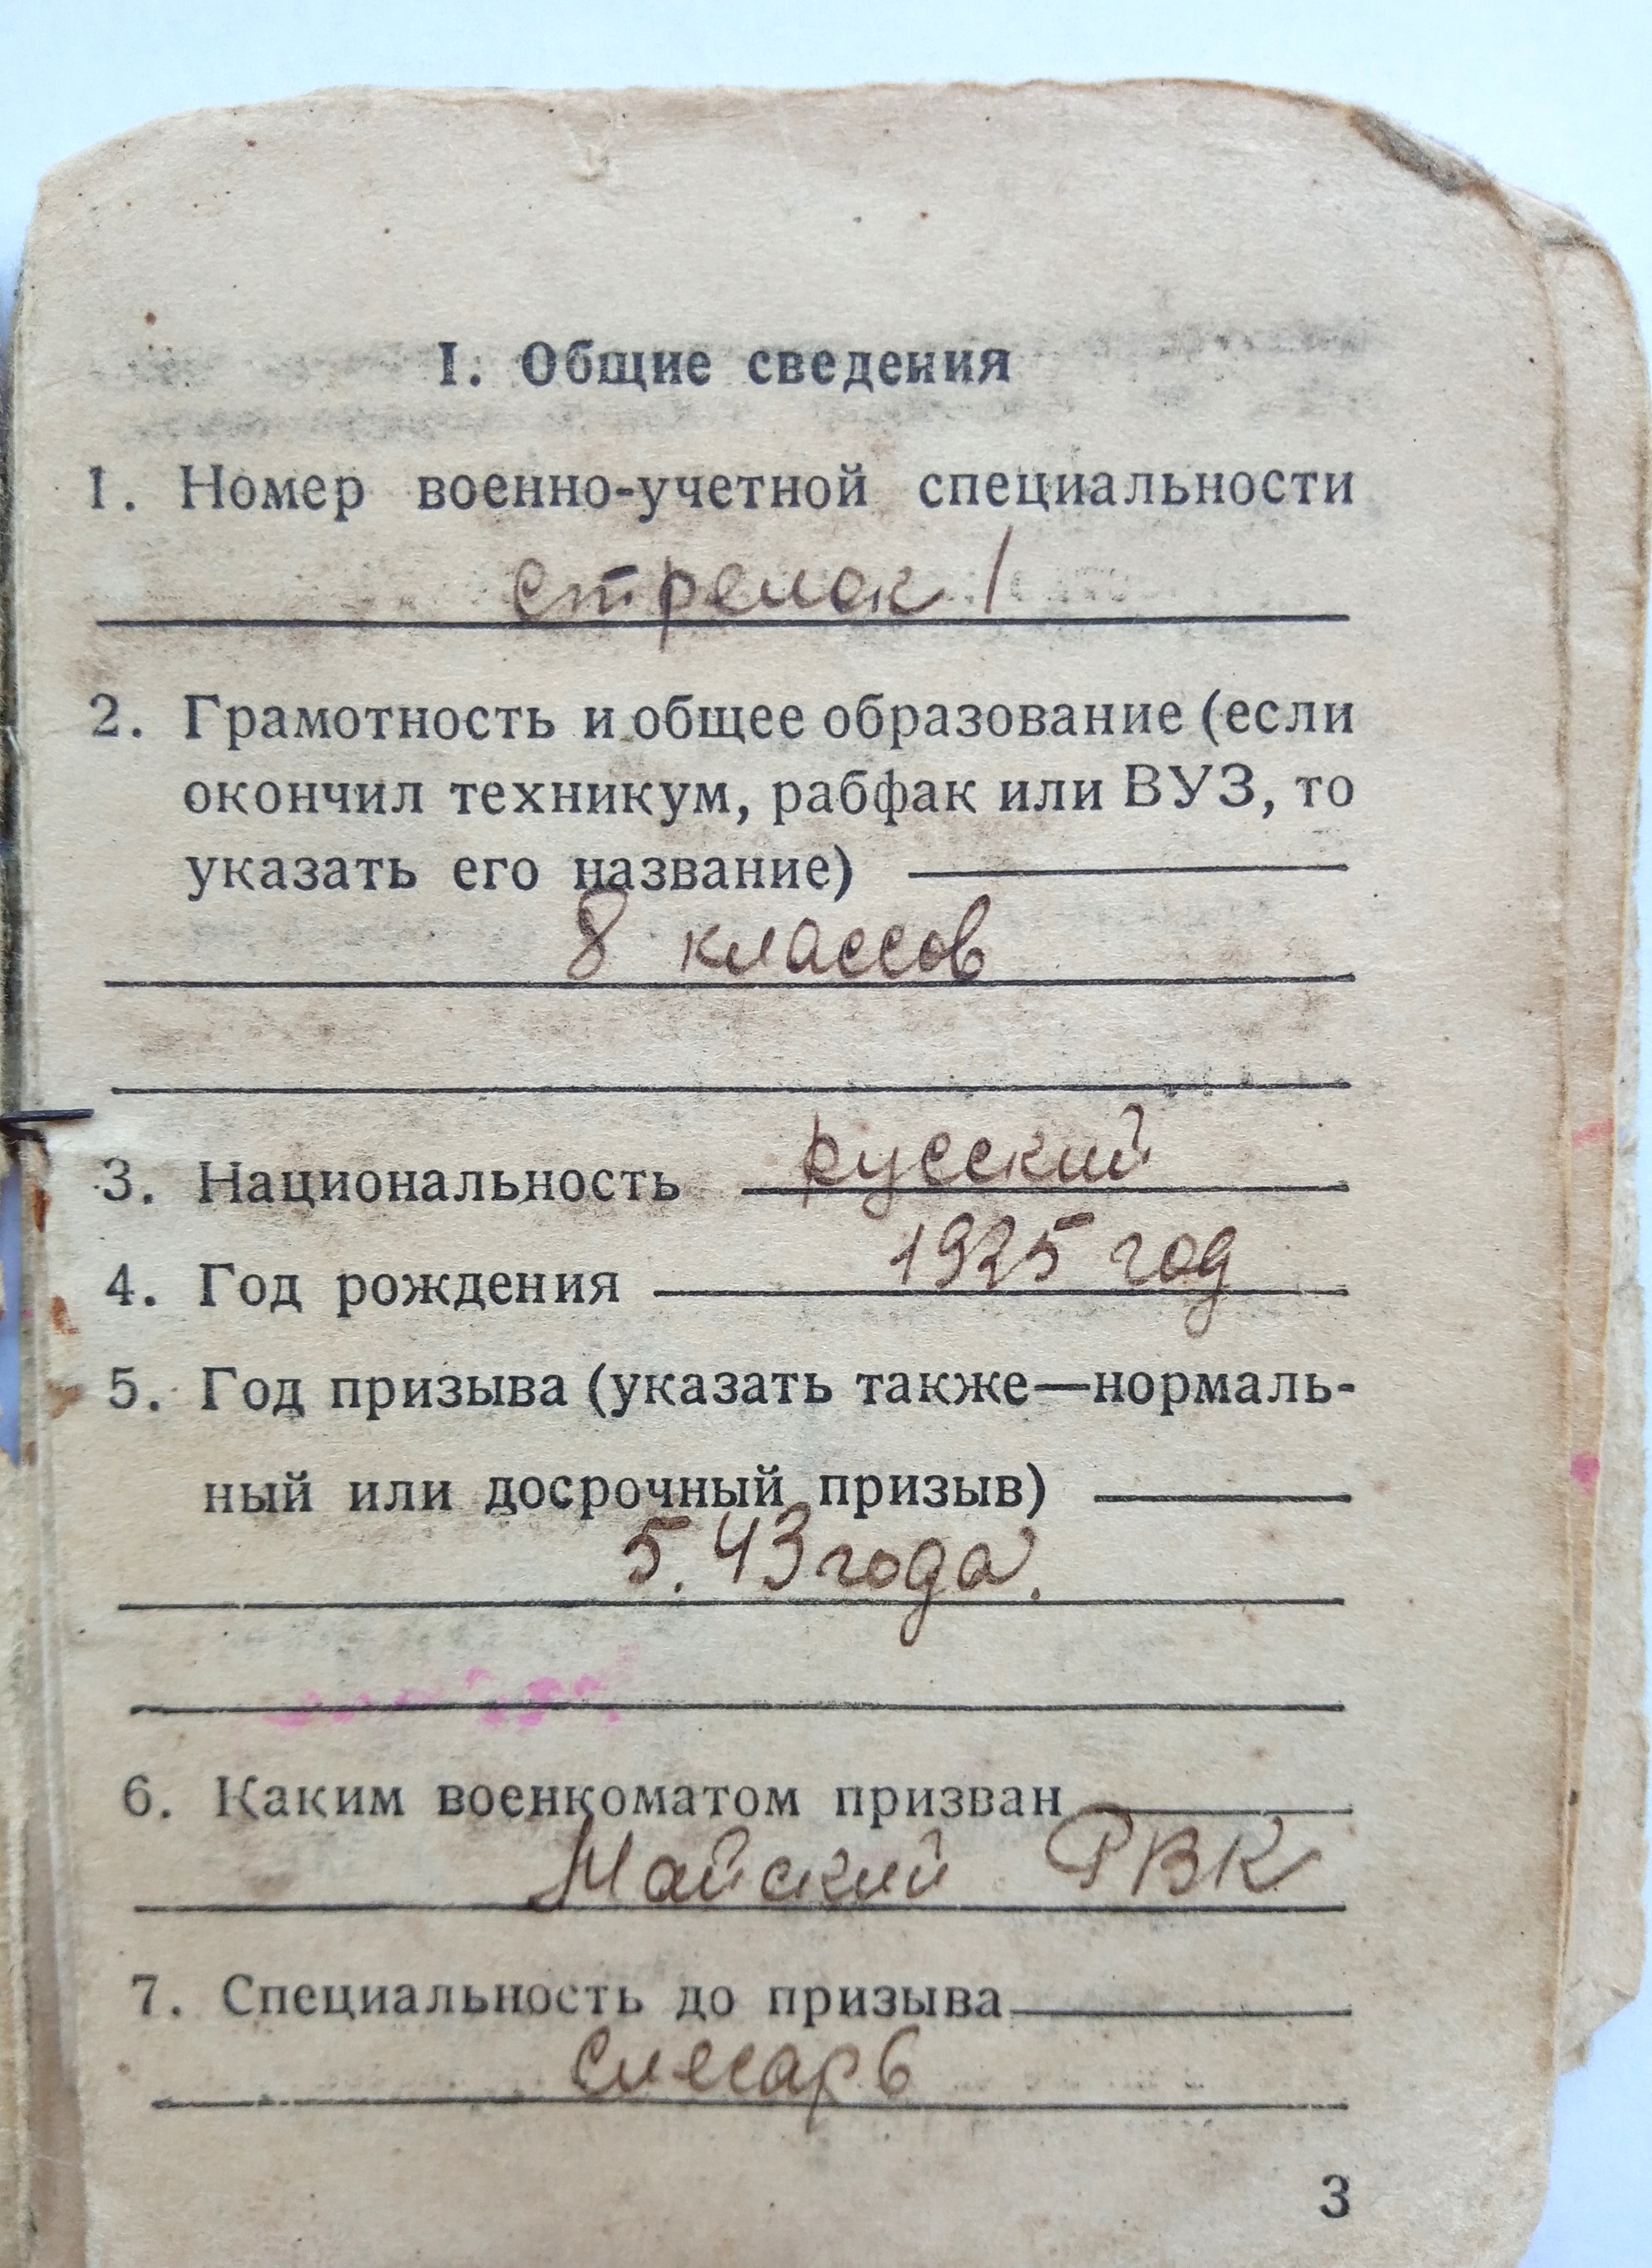 I. Общие сведения
1. Номер военно-учетной специальности
стрелок 1
2. Грамотность и общее образование (если
окончил техникум, рабфак или ВУЗ, то
указать его название)
8 классов
3. Национальность русский
4. Год рождения 1925 год
5. Год призыва (указать также—нормаль-
ный или досрочный призыв)
5. 43 года.
6. Каким военкоматом призван
Майский РВК
7. Специальность до призыва
Слесарь
3